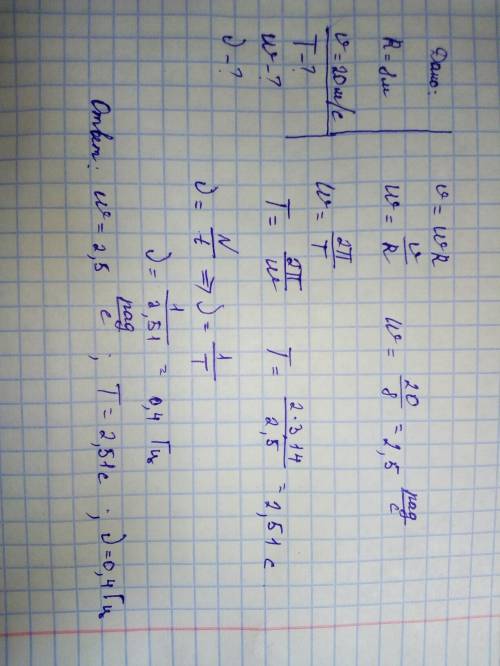 Дано:
R = 8м
υ = 20 м/с
T - ?
W - ?
ν - ?
υ = WR
W = υ/R W = 20/8 = 2,5 рад/с
W = 2π/T
T = 2π/W T = 2·3,14/2,5 = 2,51 с.
ν = N/t ⇒ ν = 1/T
ν = 1/2,51 = 0,4 Гц
Ответ: W = 2,5 рад/с ; T = 2,51 с ; ν = 0,4 Гц